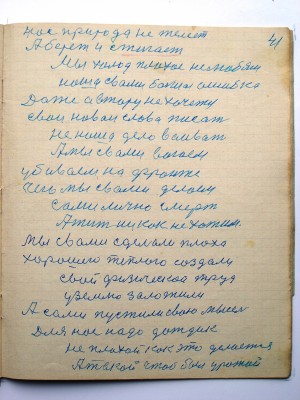 41
нас природа не жалет
А берет и стигает
Мы холод плохое не любям
наша свами божия ошибка
Даже автору не хочету
свои новаи слова писат
не наша дело воиват
А мы свами воюем
убиваем на фронте
Чего мы свами делаем
сами лично смерт
А жит никак не хотим.
Мы свами сделали плоха
хорошего теплого создали
свой физическоя труд
уземлю заложили
А сами пустили свою мысел
Для нас надо дождик
не плахой как это делается
А такой чтоб был урожай